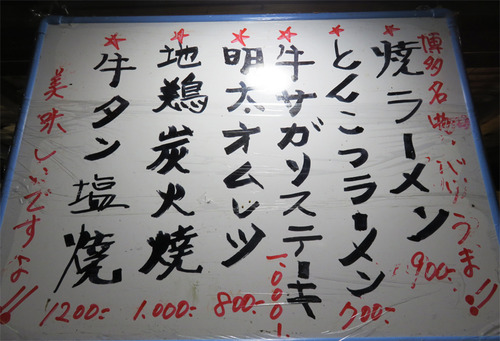 博多名物・バリうま!!
焼ラーメン 900-
とんこつラーメン 700-
牛サガリステーキ 1,000-
明太オムレツ 800-
地鶏炭火焼 1.000-
牛タン塩焼 1200-
美味しいですよ!!